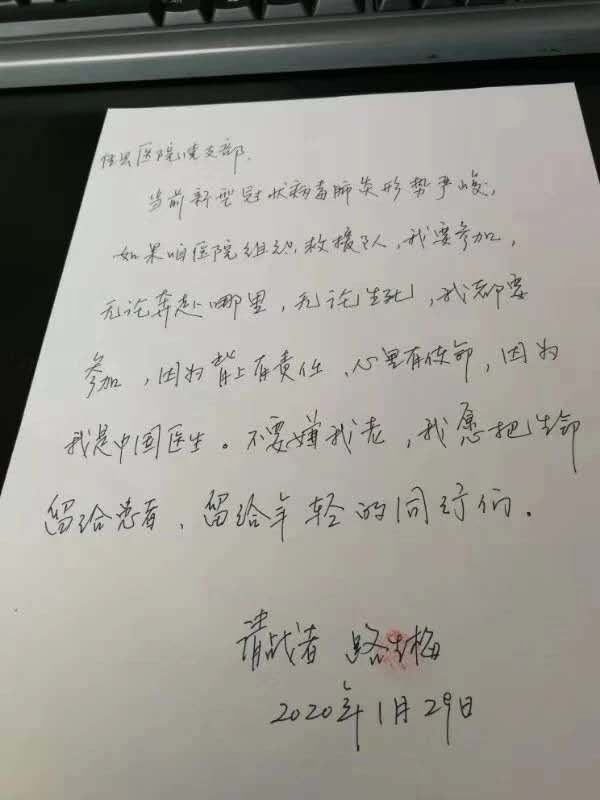 佳县医院党支部.
当前新型冠状病毒肺炎形势严峻,
如果咱医院组织救援队,我要参加,
无论奔赴哪里,无论生死,我都要
参加,因为背上有责任、心里有使命,因为
我是中国医生。不要嫌我老,我愿把生命
留给患者,留给年轻的同行们。
请战者 路生梅
2020年1月29日